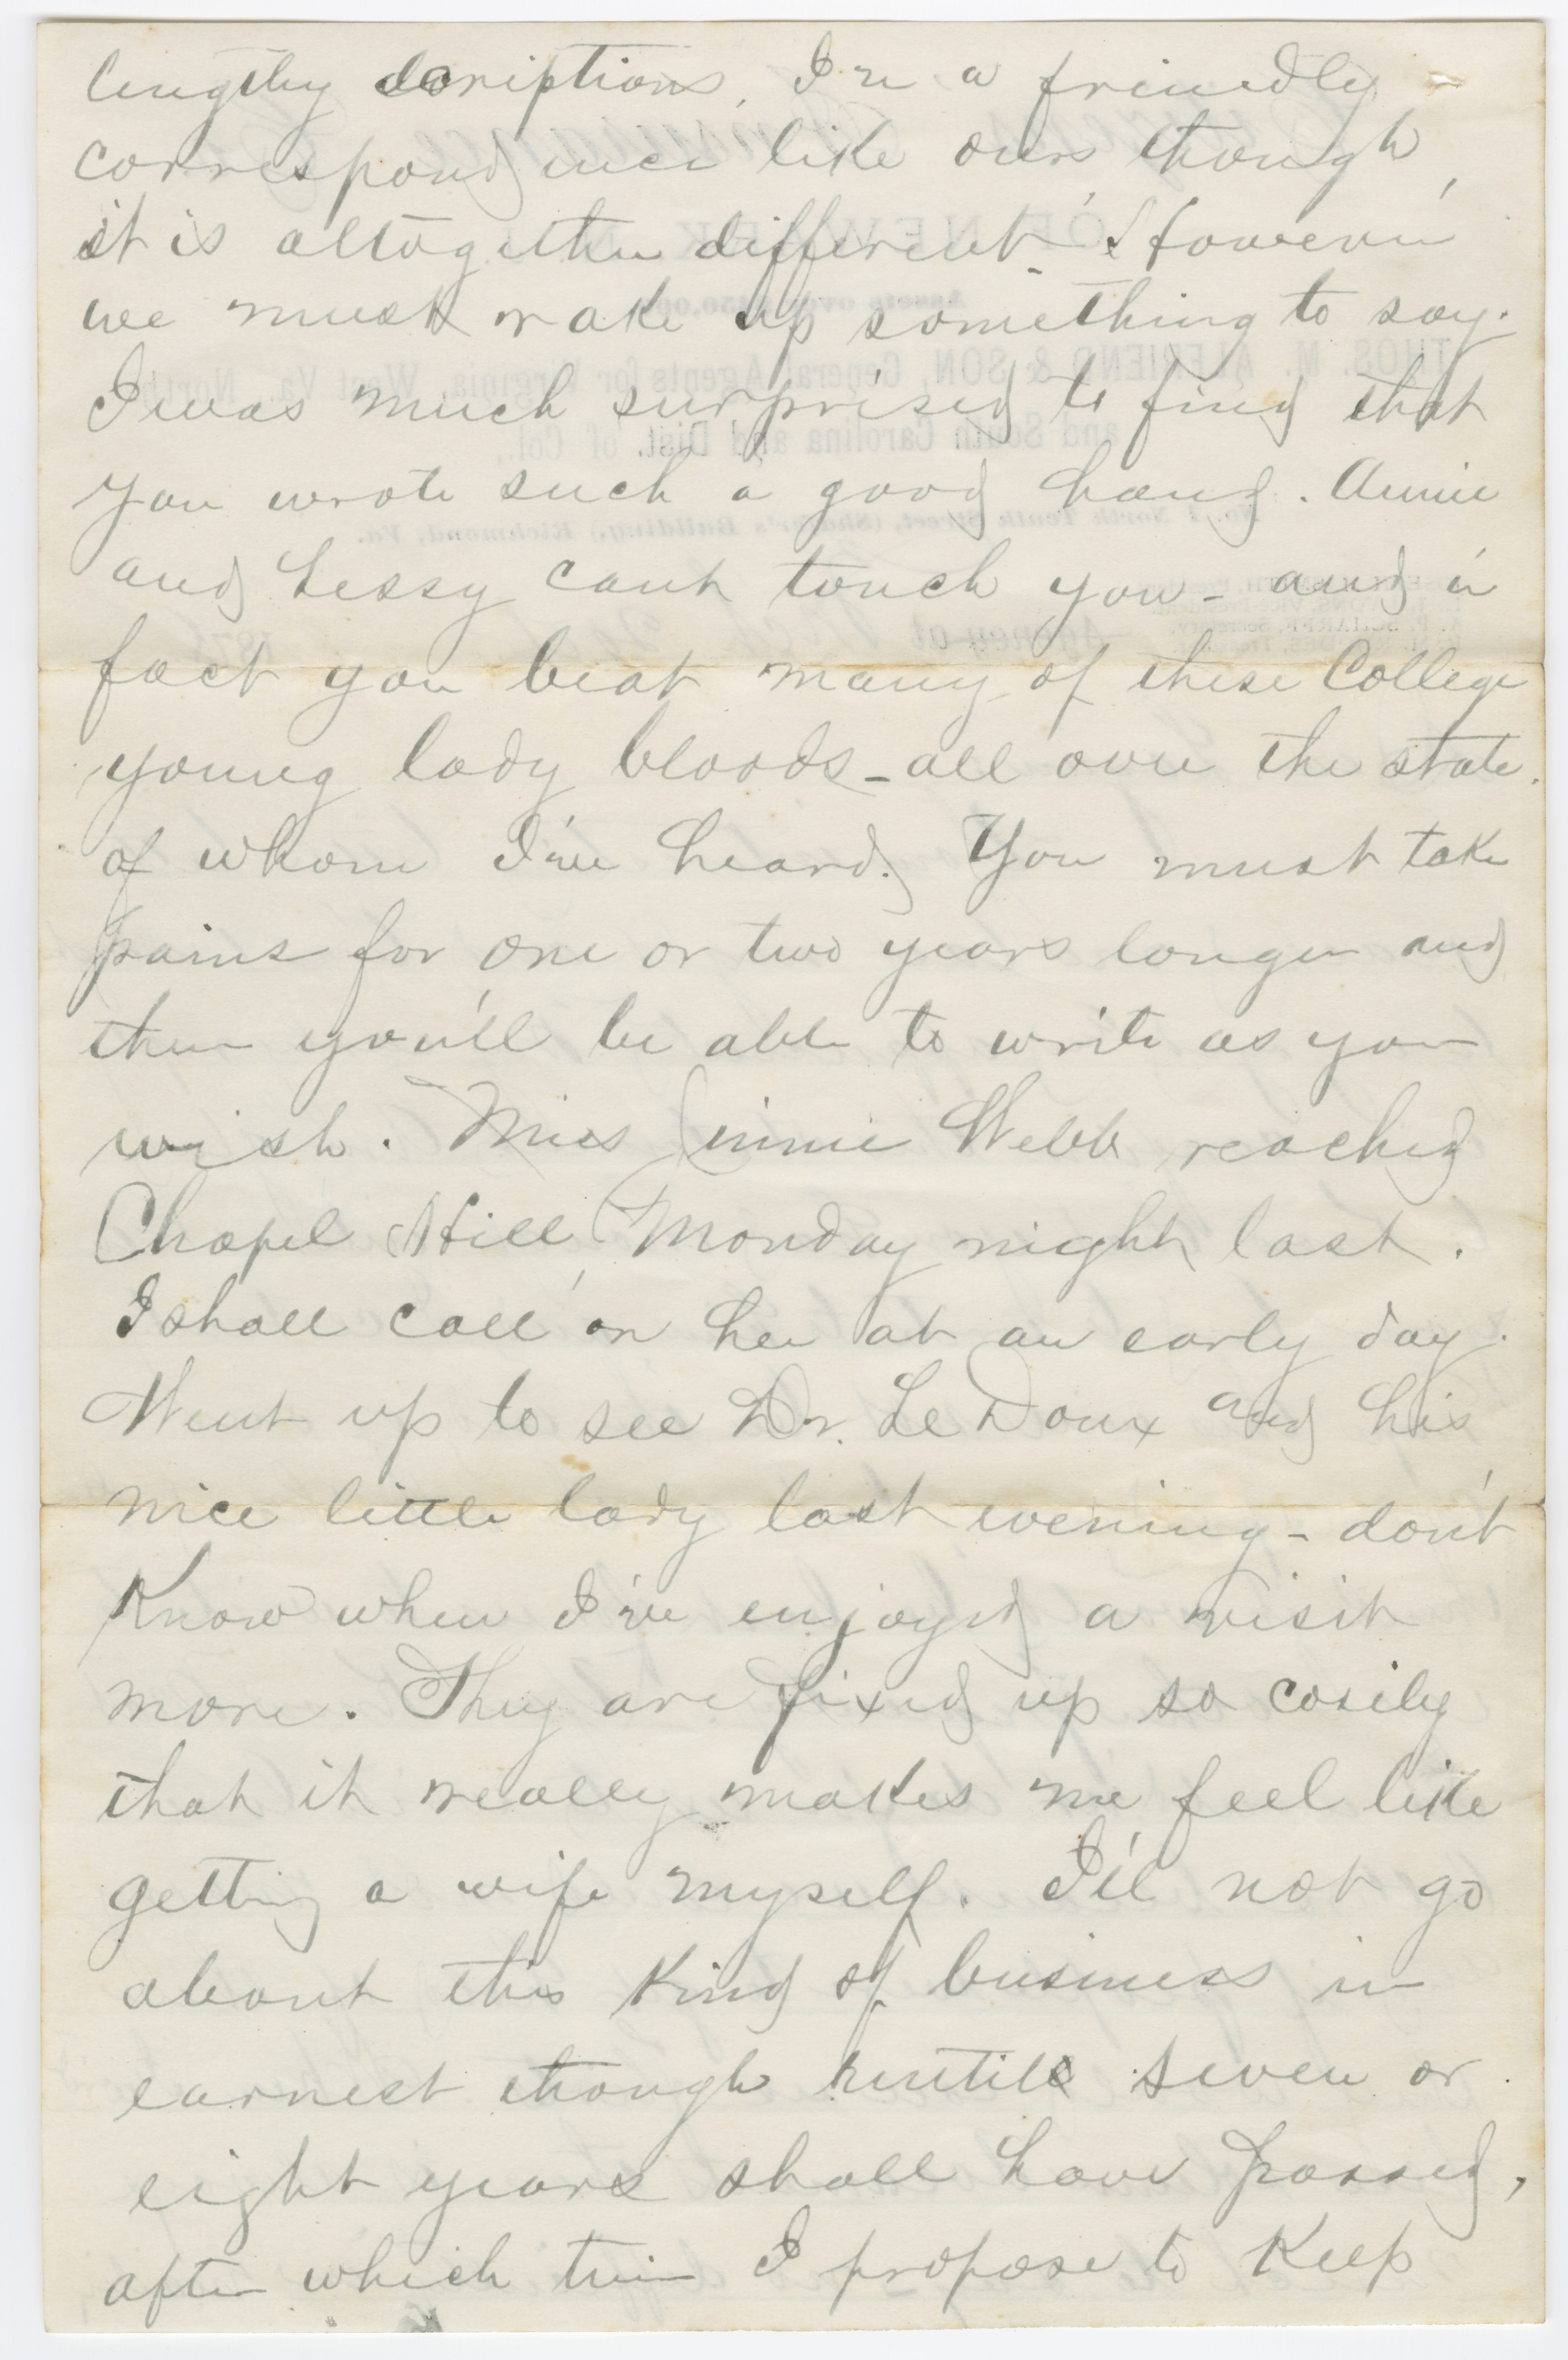 lengthy dcriptions, In a friendly
correspondence like ours though,
it is altogether different. However
we must rake up something to say.
I was much surprised to find that
you wrote such a good hand. Annie
and Lessy cant touch you - and in
fact you beat many of these College
young lady bloods - all over the state
of whom I've heard. You must take
pains for one or two years longer and
then you'll be able to write as you
wish. Miss Jinnie Webb reached
Chapel Hill Monday night last.
I shall call on her at an early day.
Went up to see Dr. Le Doux and his
nice little lady last evening - don't
Know when I've enjoyed a visit
more. They are fixed up so cosily
that it really makes me feel like
getting a wife myself. I'll not go
about this Kind of business in
earnest though until seven or
eight years shall have passed,
after which time I propose to Keep